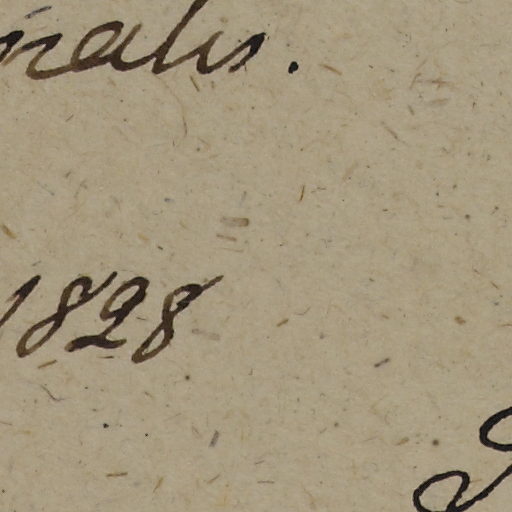 nalis.
1828